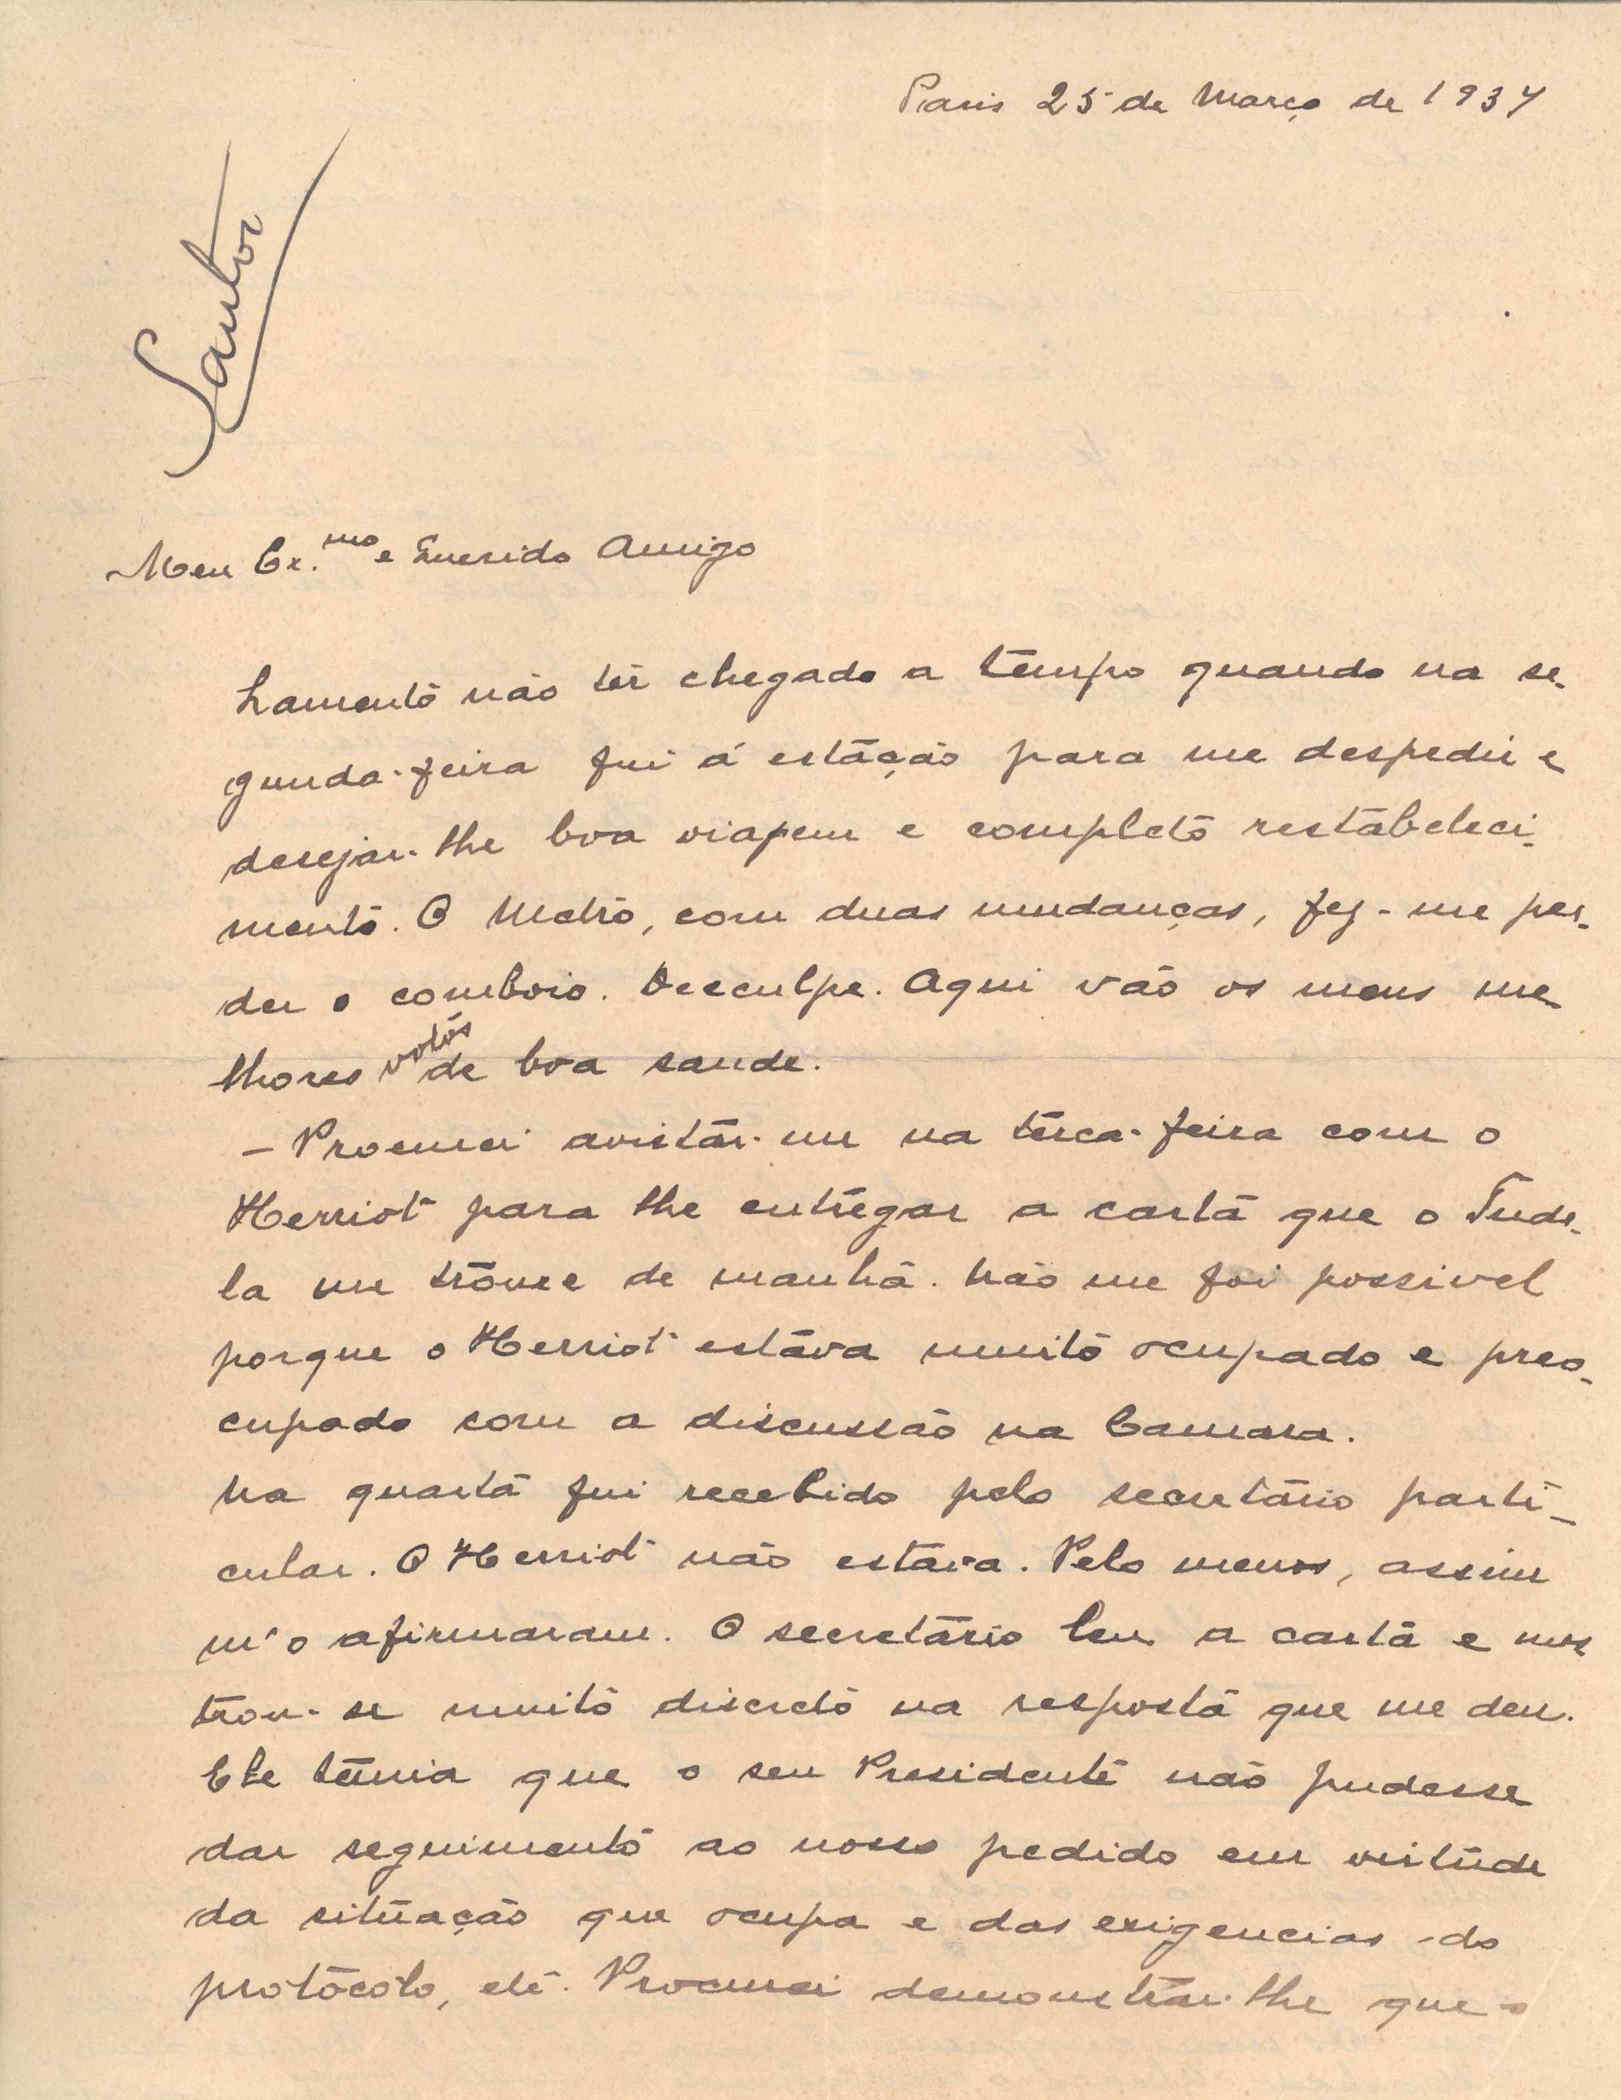 Paris 25 de Março de 1937
Santos
Meu Ex.mo e Querido Amigo
Lamento não ter chegado a tempo quando na se-
gunda-feira fui á estação para me despedir e
desejar-lhe boa viagem e completo restabeleci-
mento. O Metro, com duas mudanças, fez-me per-
der o comboio. Desculpe. Aqui vão os meus me
lhores votos de boa saude.
- Procurei avistar-me na terca-feira com o
Herriot para lhe entregar a carta que o Tude-
la me trouxe de manhã. Não me foi possivel
porque o Herriot estava muito ocupado e preo-
cupado com a discussão na Camara.
Na quarta fui recebido pelo secretário parti-
cular. O Herriot não estava. Pelo menos, assim
m'o afirmaram. O secretário leu a carta e mos
trou-se muito discreto na resposta que me deu.
Ele temia que o seu Presidente não pudesse
dar seguimento ao nosso pedido em virtude
da situação que ocupa e das exigencias do
protocolo, etc. Procurei demonstrar-lhe que o